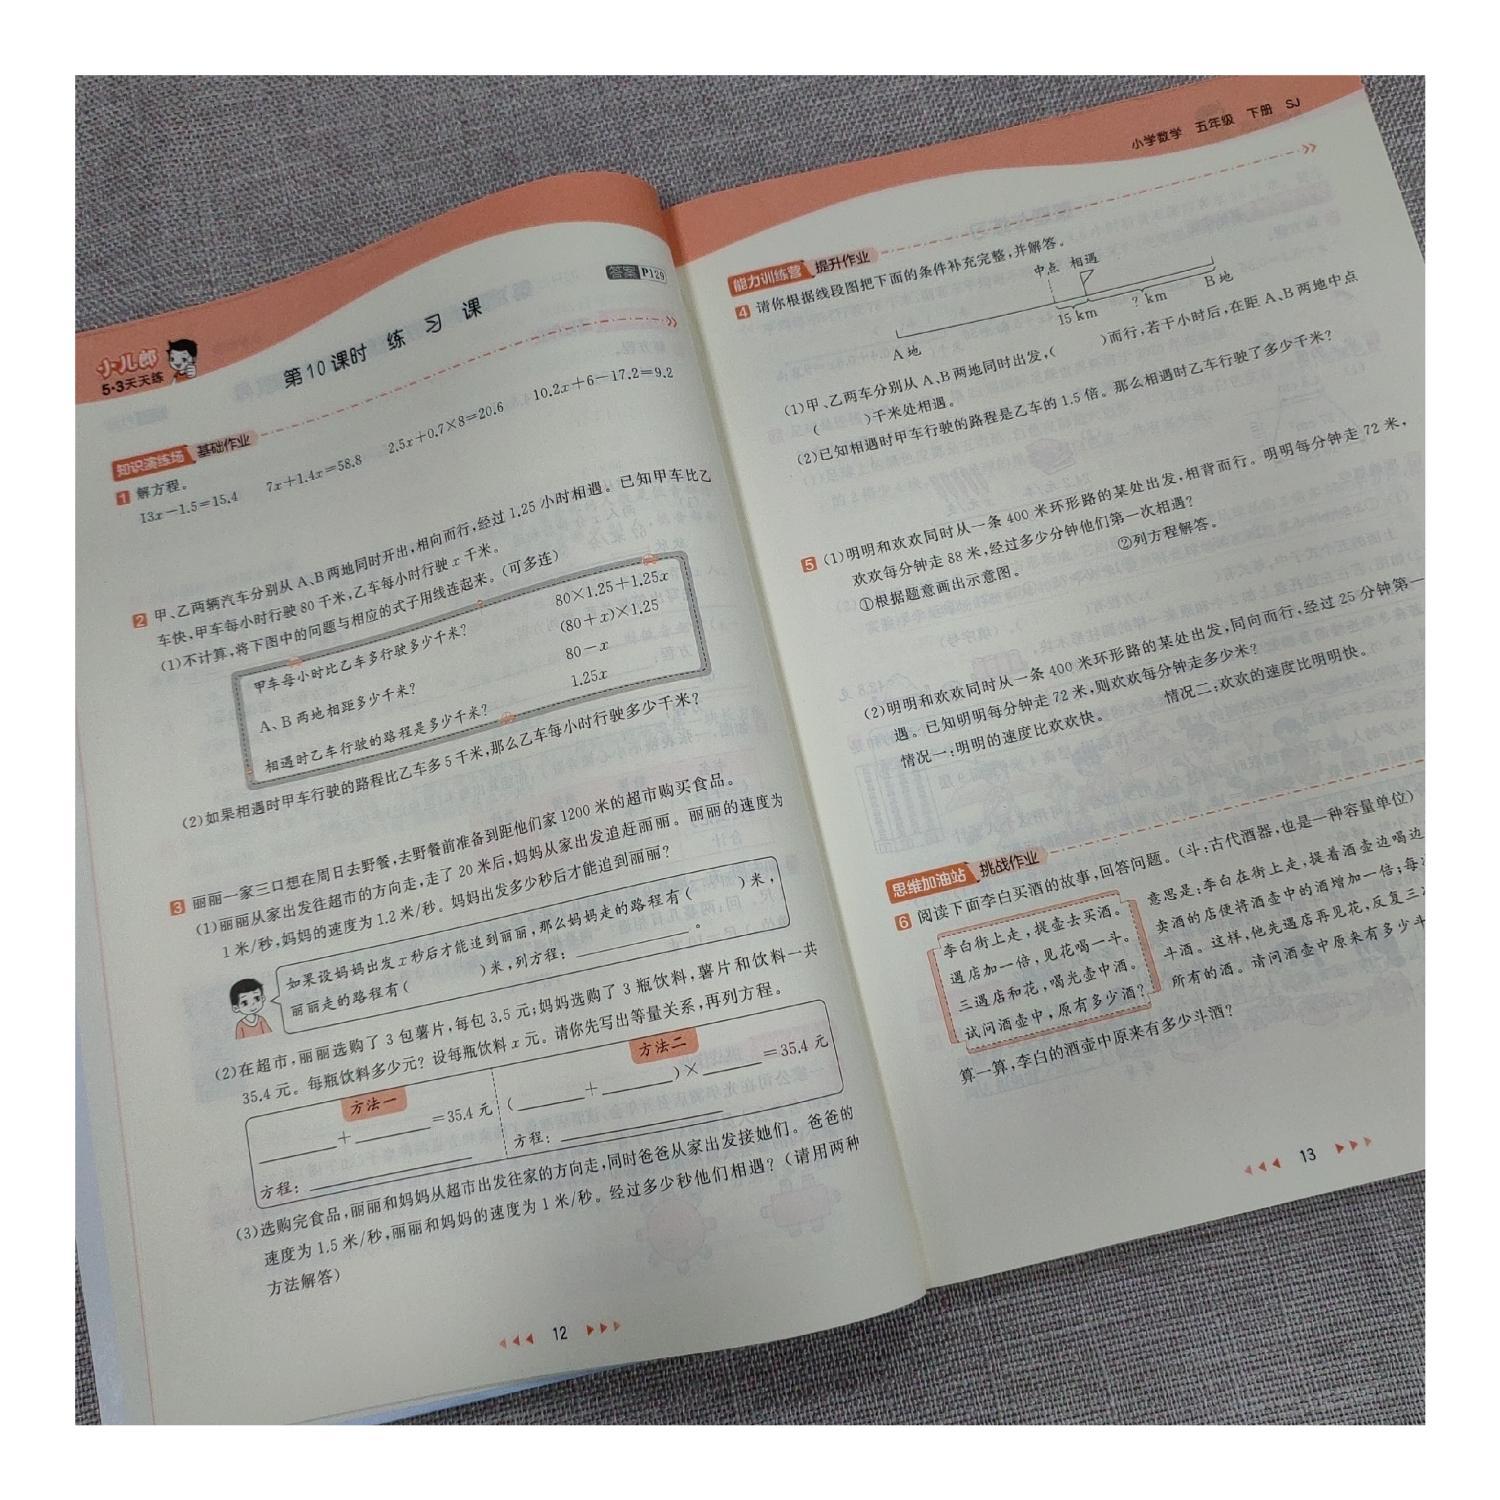 小儿郎
5·3天天练
答案 P129
第10课时 练习课
知识演练场 基础作业
1 解方程。
13x－1.5=15.4 7x+1.4x=58.8 2.5x+0.7×8=20.6 10.2x+6－17.2=9.2
2 甲、乙两辆汽车分别从A、B两地同时开出,相向而行,经过1.25小时相遇。已知甲车比乙
车快,甲车每小时行驶80千米,乙车每小时行驶x千米。
(1)不计算,将下图中的问题与相应的式子用线连起来。(可多连)
甲车每小时比乙车多行驶多少千米? 80×1.25+1.25x
(80+x)×1.25
A、B两地相距多少千米? 80－x
相遇时乙车行驶的路程是多少千米? 1.25x
(2)如果相遇时甲车行驶的路程比乙车多5千米,那么乙车每小时行驶多少千米?
3 丽丽一家三口想在周日去野餐,去野餐前准备到距他们家1200米的超市购买食品。
(1)丽丽从家出发往超市的方向走,走了20米后,妈妈从家出发追赶丽丽。丽丽的速度为
1米/秒,妈妈的速度为1.2米/秒。妈妈出发多少秒后才能追到丽丽?
如果设妈妈出发x秒后才能追到丽丽,那么妈妈走的路程有( )米,
丽丽走的路程有( )米,列方程:________。
(2)在超市,丽丽选购了3包薯片,每包3.5元;妈妈选购了3瓶饮料,薯片和饮料一共
35.4元。每瓶饮料多少元?设每瓶饮料x元。请你先写出等量关系,再列方程。
方法一 方法二
________+________=35.4元 (________+________)×________=35.4元
方程:________ 方程:________
(3)选购完食品,丽丽和妈妈从超市出发往家的方向走,同时爸爸从家出发接她们。爸爸的
速度为1.5米/秒,丽丽和妈妈的速度为1米/秒。经过多少秒他们相遇?(请用两种
方法解答)
12
小学数学 五年级 下册 SJ
能力训练营 提升作业
4 请你根据线段图把下面的条件补充完整,并解答。
中点 相遇
A地 15 km ? km B地
(1)甲、乙两车分别从A、B两地同时出发,( )而行,若干小时后,在距A、B两地中点
( )千米处相遇。
(2)已知相遇时甲车行驶的路程是乙车的1.5倍。那么相遇时乙车行驶了多少千米?
5 (1)明明和欢欢同时从一条400米环形路的某处出发,相背而行。明明每分钟走72米,
欢欢每分钟走88米,经过多少分钟他们第一次相遇?
①根据题意画出示意图。 ②列方程解答。
(2)明明和欢欢同时从一条400米环形路的某处出发,同向而行,经过25分钟第一
遇。已知明明每分钟走72米,则欢欢每分钟走多少米?
情况一:明明的速度比欢欢快。 情况二:欢欢的速度比明明快。
思维加油站 挑战作业
6 阅读下面李白买酒的故事,回答问题。(斗:古代酒器,也是一种容量单位)
李白街上走,提壶去买酒。
遇店加一倍,见花喝一斗。
三遇店和花,喝光壶中酒。
试问酒壶中,原有多少酒?
意思是:李白在街上走,提着酒壶边喝边
卖酒的店便将酒壶中的酒增加一倍;每
斗酒。这样,他先遇店再见花,反复三
所有的酒。请问酒壶中原来有多少斗
算一算,李白的酒壶中原来有多少斗酒?
13